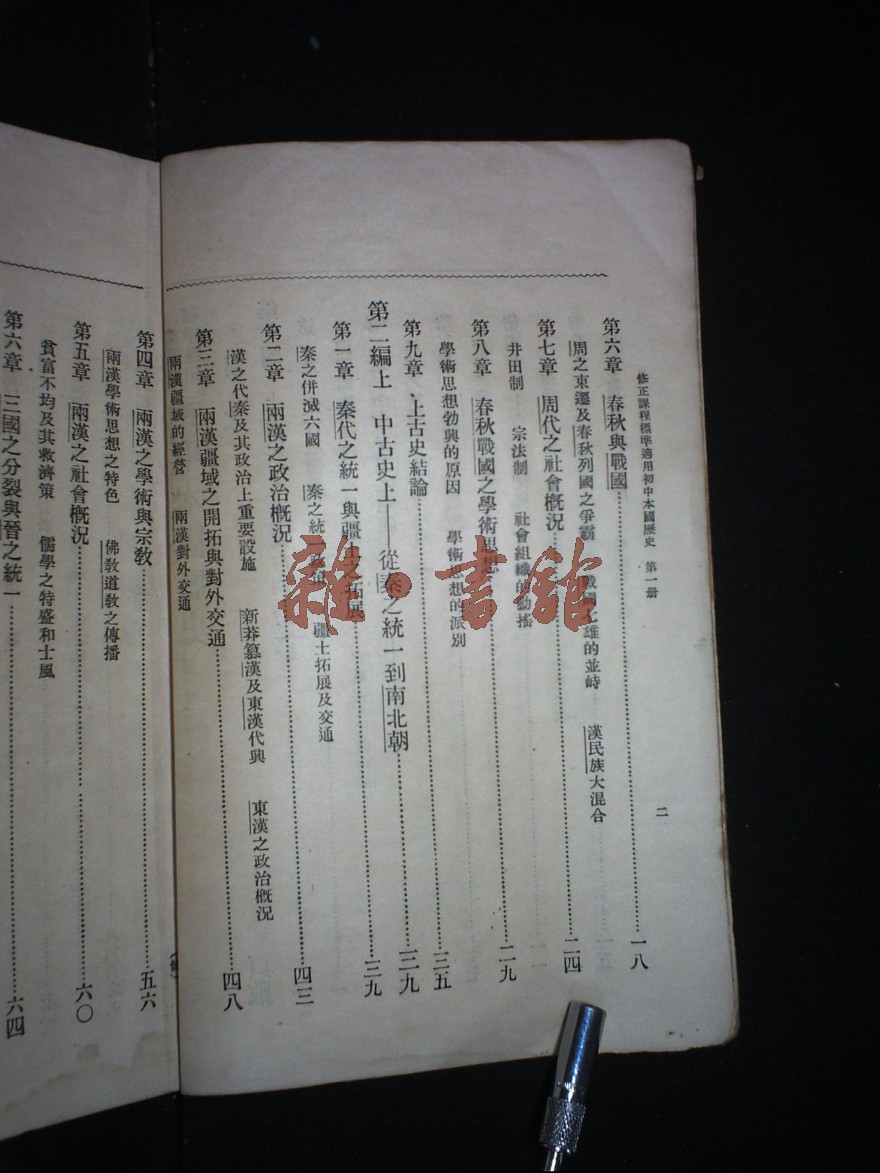 修正課程標準適用初中本國歷史 第一册 二
第六章 春秋與戰國……一八
周之東遷及春秋列國之爭霸 戰國七雄的並峙 漢民族大混合
第七章 周代之社會概況……二四
井田制 宗法制 社會組織的動搖
第八章 春秋戰國之學術思想……二九
學術思想勃興的原因 學術思想的派別
第九章 上古史結論……三五
第二編上 中古史上——從秦之統一到南北朝……三九
第一章 秦代之統一與疆土之拓展……三九
秦之併滅六國 秦之統一政策 疆土拓展及交通
第二章 兩漢之政治概況……四三
漢之代秦及其政治上重要設施 新莽篡漢及東漢代興 東漢之政治概況
第三章 兩漢疆域之開拓與對外交通……四八
兩漢疆域的經營 兩漢對外交通
第四章 兩漢之學術與宗教……五六
兩漢學術思想之特色 佛教道教之傳播
第五章 兩漢之社會概況……六〇
貧富不均及其救濟策 儒學之特盛和士風
第六章 三國之分裂與晉之統一……六四
雜·書館